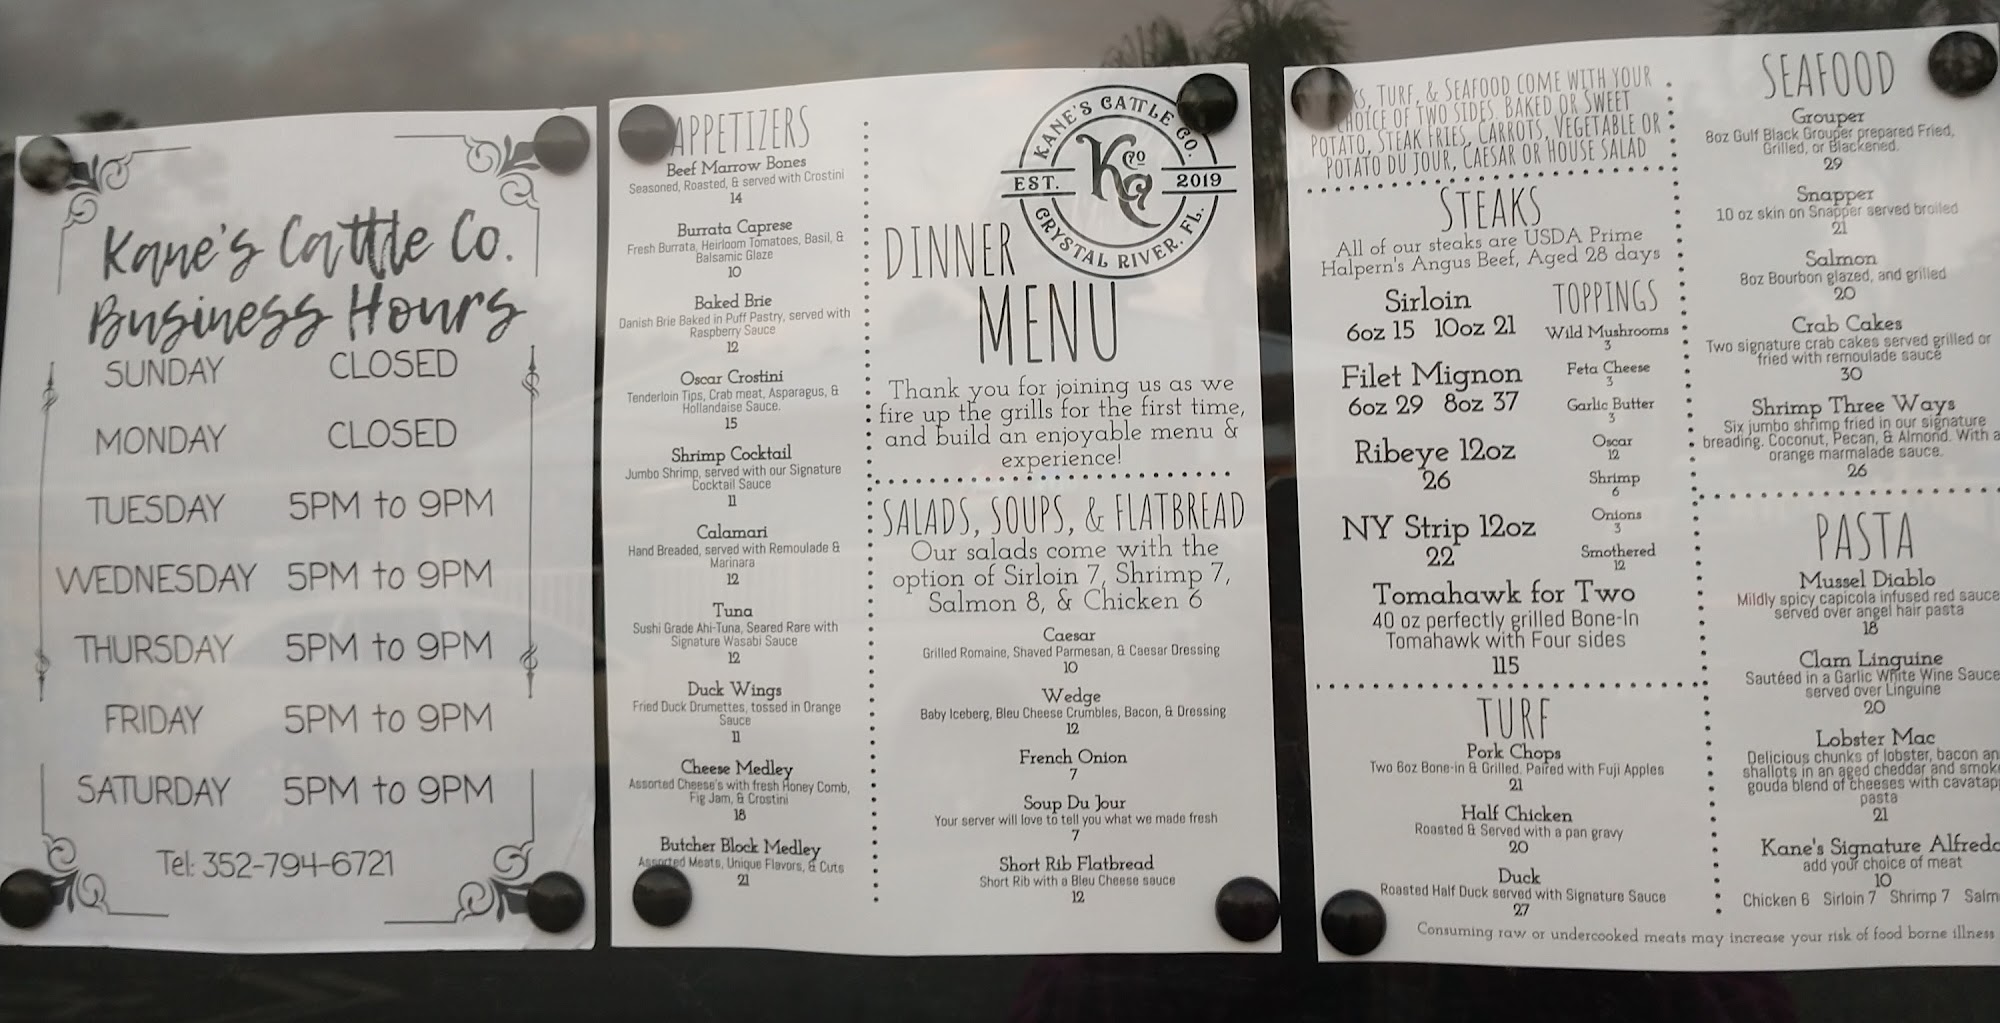 Kane's Cattle Co.
Business Hours
SUNDAY CLOSED
MONDAY CLOSED
TUESDAY 5PM to 9PM
WEDNESDAY 5PM to 9PM
THURSDAY 5PM to 9PM
FRIDAY 5PM to 9PM
SATURDAY 5PM to 9PM
Tel: 352-794-6721
APPETIZERS
Beef Marrow Bones
Seasoned, Roasted, & served with Crostini
14
Burrata Caprese
Fresh Burrata, Heirloom Tomatoes, Basil, &
Balsamic Glaze
10
Baked Brie
Danish Brie Baked in Puff Pastry, served with
Raspberry Sauce
12
Oscar Crostini
Tenderloin Tips, Crab meat, Asparagus, &
Hollandaise Sauce.
15
Shrimp Cocktail
Jumbo Shrimp, served with our Signature
Cocktail Sauce
11
Calamari
Hand Breaded, served with Remoulade &
Marinara
12
Tuna
Sushi Grade Ahi-Tuna, Seared Rare with
Signature Wasabi Sauce
12
Duck Wings
Fried Duck Drumettes, tossed in Orange
Sauce
11
Cheese Medley
Assorted Cheese's with fresh Honey Comb,
Fig Jam, & Crostini
18
Butcher Block Medley
Assorted Meats, Unique Flavors, & Cuts
21
KANE'S CATTLE CO.
KCo
EST. 2019
CRYSTAL RIVER, FL.
DINNER
MENU
Thank you for joining us as we
fire up the grills for the first time,
and build an enjoyable menu &
experience!
SALADS, SOUPS, & FLATBREAD
Our salads come with the
option of Sirloin 7, Shrimp 7,
Salmon 8, & Chicken 6
Caesar
Grilled Romaine, Shaved Parmesan, & Caesar Dressing
10
Wedge
Baby Iceberg, Bleu Cheese Crumbles, Bacon, & Dressing
12
French Onion
7
Soup Du Jour
Your server will love to tell you what we made fresh
7
Short Rib Flatbread
Short Rib with a Bleu Cheese sauce
12
TURF, & SEAFOOD COME WITH YOUR
CHOICE OF TWO SIDES. BAKED OR SWEET
POTATO, STEAK FRIES, CARROTS, VEGETABLE OR
POTATO DU JOUR, CAESAR OR HOUSE SALAD
STEAKS
All of our steaks are USDA Prime
Halpern's Angus Beef, Aged 28 days
Sirloin
6oz 15 10oz 21
Filet Mignon
6oz 29 8oz 37
Ribeye 12oz
26
NY Strip 12oz
22
TOPPINGS
Wild Mushrooms
3
Feta Cheese
3
Garlic Butter
3
Oscar
12
Shrimp
6
Onions
3
Smothered
12
Tomahawk for Two
40 oz perfectly grilled Bone-In
Tomahawk with Four sides
115
TURF
Pork Chops
Two 6oz Bone-in & Grilled, Paired with Fuji Apples
21
Half Chicken
Roasted & Served with a pan gravy
20
Duck
Roasted Half Duck served with Signature Sauce
27
SEAFOOD
Grouper
8oz Gulf Black Grouper prepared Fried,
Grilled, or Blackened.
29
Snapper
10 oz skin on Snapper served broiled
21
Salmon
8oz Bourbon glazed, and grilled
20
Crab Cakes
Two signature crab cakes served grilled or
fried with remoulade sauce
30
Shrimp Three Ways
Six jumbo shrimp fried in our signature
breading. Coconut, Pecan, & Almond. With a
orange marmalade sauce.
26
PASTA
Mussel Diablo
Mildly spicy capicola infused red sauce
served over angel hair pasta
18
Clam Linguine
Sautéed in a Garlic White Wine Sauce
served over Linguine
20
Lobster Mac
Delicious chunks of lobster, bacon an
shallots in an aged cheddar and smok
gouda blend of cheeses with cavatap
pasta
21
Kane's Signature Alfredo
add your choice of meat
10
Chicken 6 Sirloin 7 Shrimp 7 Salm
Consuming raw or undercooked meats may increase your risk of food borne illness